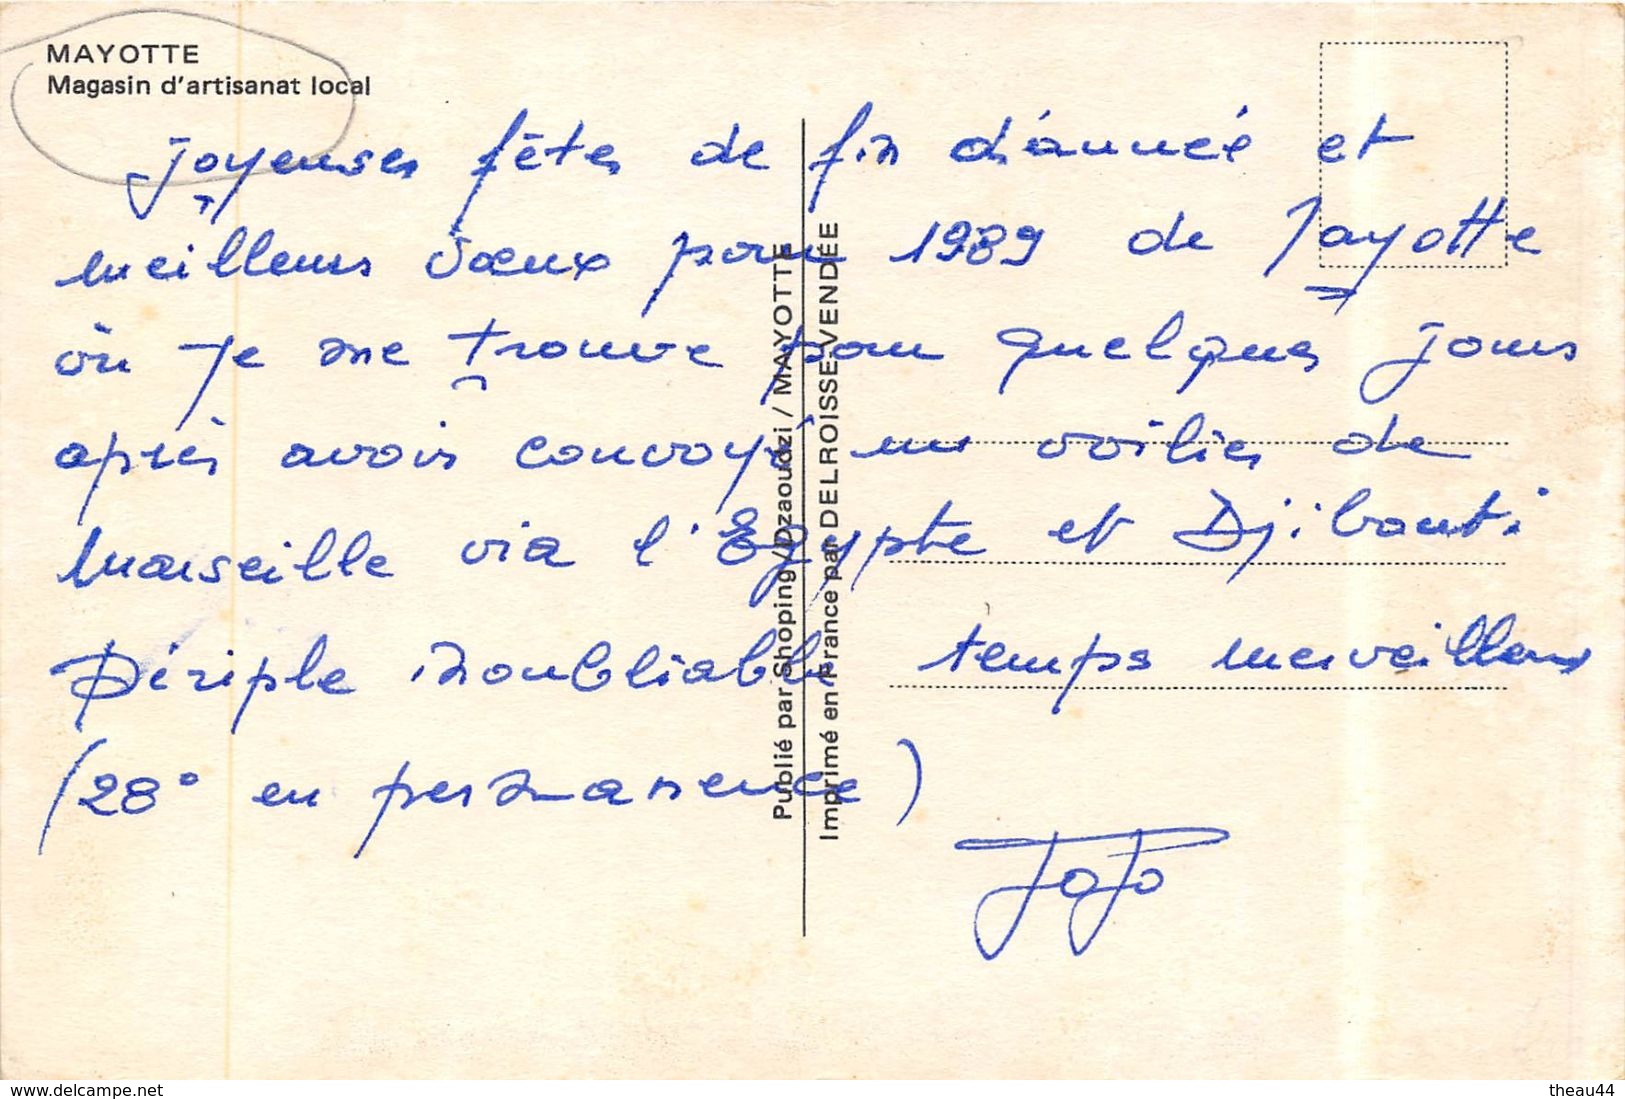 MAYOTTE
Magasin d'artisanat local
Joyeuses fêtes de fin d'année et
meilleurs vœux pour 1989 de Mayotte
où je me trouve pour quelques jours
après avoir convoyé un voilier de
Marseille via l'Egypte et Djibouti
Périple inoubliable temps merveilleux
(28° en permanence)
JoJo
Publié par Shoping / Dzaoudzi / MAYOTTE
Imprimé en France par DELROISSE-VENDÉE
www.delcampe.net
theau44